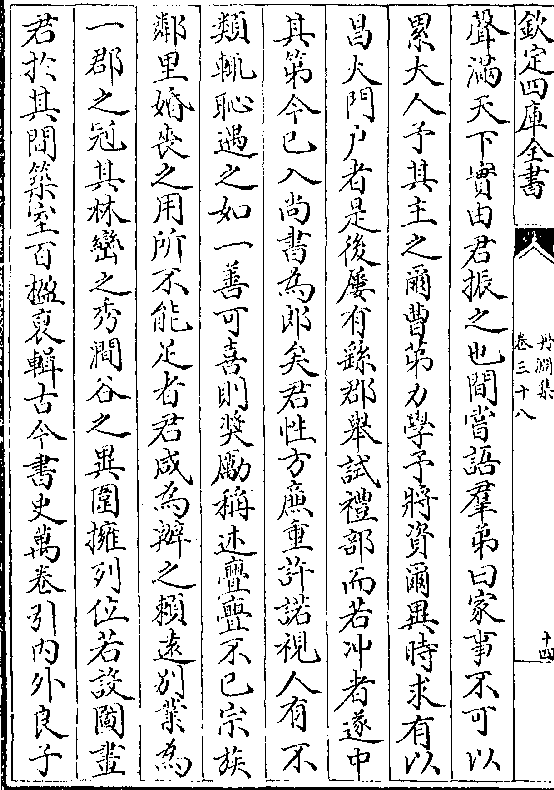 欽定四庫全書
丹淵集
卷三十八
十四
聲滿天下實由君振之也間嘗語羣弟曰家事不可以
累大人予其主之爾曹第力學予將資爾異時求有以
昌大門户者是後屢有繇郡舉試禮部而若冲者遂中
其第今已入尚書為郎矣君性方亷重許諾視人有不
類輒恥遇之如一善可喜則奬勵稱述亹亹不已宗族
鄰里婚喪之用所不能足者君咸為辦之賴逺别業為
一郡之冠其林巒之秀澗谷之異圍擁列位若設圖畫
君於其間築室百楹裒輯古今書史萬卷引内外良子